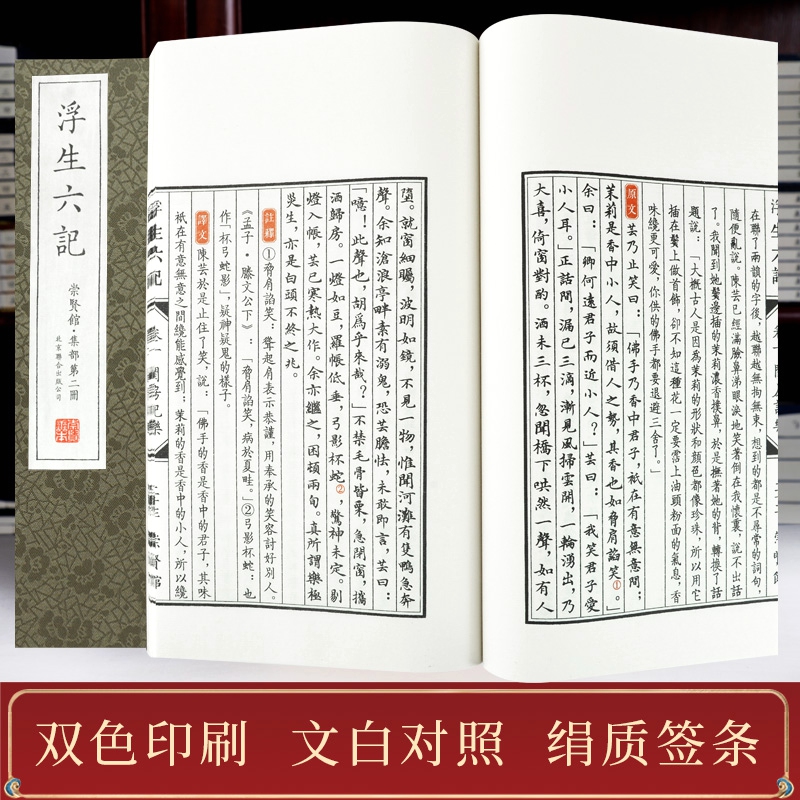 浮生六記
崇賢館·集部第二冊
北京聯合出版公司
在聯了兩韻的字後，越聯越無拘無束，想到的都是不尋常的詞句，
隨便亂說。陳芸已經滿臉鼻涕眼淚地笑著倒在我懷裏，說不出話
了。我聞到她鬢邊插的茉莉濃香撲鼻，於是撫著她的背，轉換了話
題說：「大概古人是因為茉莉的形狀和顏色都像珍珠，所以用它
插在鬢上做首飾，卻不知這種花一定要霑上油頭粉面的氣息，香
味纔更可愛，你供的佛手都要退避三舍了。」
原文 芸乃止笑曰：「佛手乃香中君子，祇在有意無意間；
茉莉是香中小人，故須借人之勢，其香也如脅肩諂笑①。」
余曰：「卿何遠君子而近小人？」芸曰：「我笑君子愛
小人耳。」正話間，漏已三滴，漸見風掃雲開，一輪湧出，乃
大喜，倚窗對酌。酒未三杯，忽聞橋下哄然一聲，如有人
墮。就窗細矚，波明如鏡，不見一物，惟聞河灘有隻鴨急奔
聲。余知滄浪亭畔素有溺鬼，恐芸膽怯，未敢即言，芸曰：
「噫！此聲也，胡爲乎來哉？」不禁毛骨皆栗，急閉窗，攜
酒歸房。一燈如豆，羅帳低垂，弓影杯蛇②，驚神未定。剔
燈入帳，芸已寒熱大作。余亦繼之，困頓兩旬。真所謂樂極
災生，亦是白頭不終之兆。
註釋 ①脅肩諂笑：聳起肩表示恭謹，用奉承的笑容討好別人。
《孟子·滕文公下》：「脅肩諂笑，病於夏畦。」②弓影杯蛇：也
作「杯弓蛇影」，疑神疑鬼的樣子。
譯文 陳芸於是止住了笑，說：「佛手的香是香中的君子，其味
祇在有意無意之間纔能感覺到；茉莉的香是香中的小人，所以纔
浮生六記
卷一 閨房記樂
双色印刷 文白对照 绢质签条